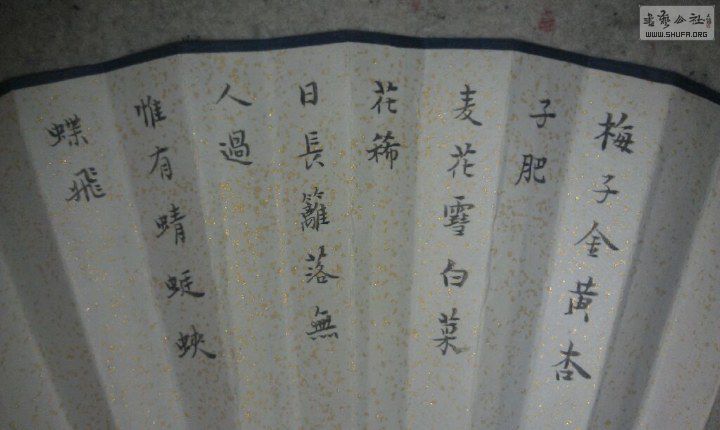 梅子金黄杏
子肥
麦花雪白菜
花稀
日長籬落無
人過
惟有蜻蜓蛺
蝶飛
书艺公社
WWW.SHUFA.ORG